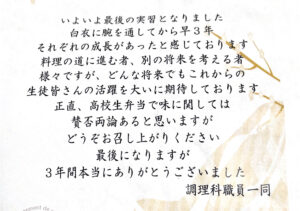 いよいよ最後の実習となりました
白衣に腕を通してから早３年
それぞれの成長があったと感じております
料理の道に進む者、別の将来を考える者
様々ですが、どんな将来でもこれからの
生徒皆さんの活躍を大いに期待しております
正直、高校生弁当で味に関しては
賛否両論あると思いますが
どうぞお召し上がりください
最後になりますが
３年間本当にありがとうございました
調理科職員一同